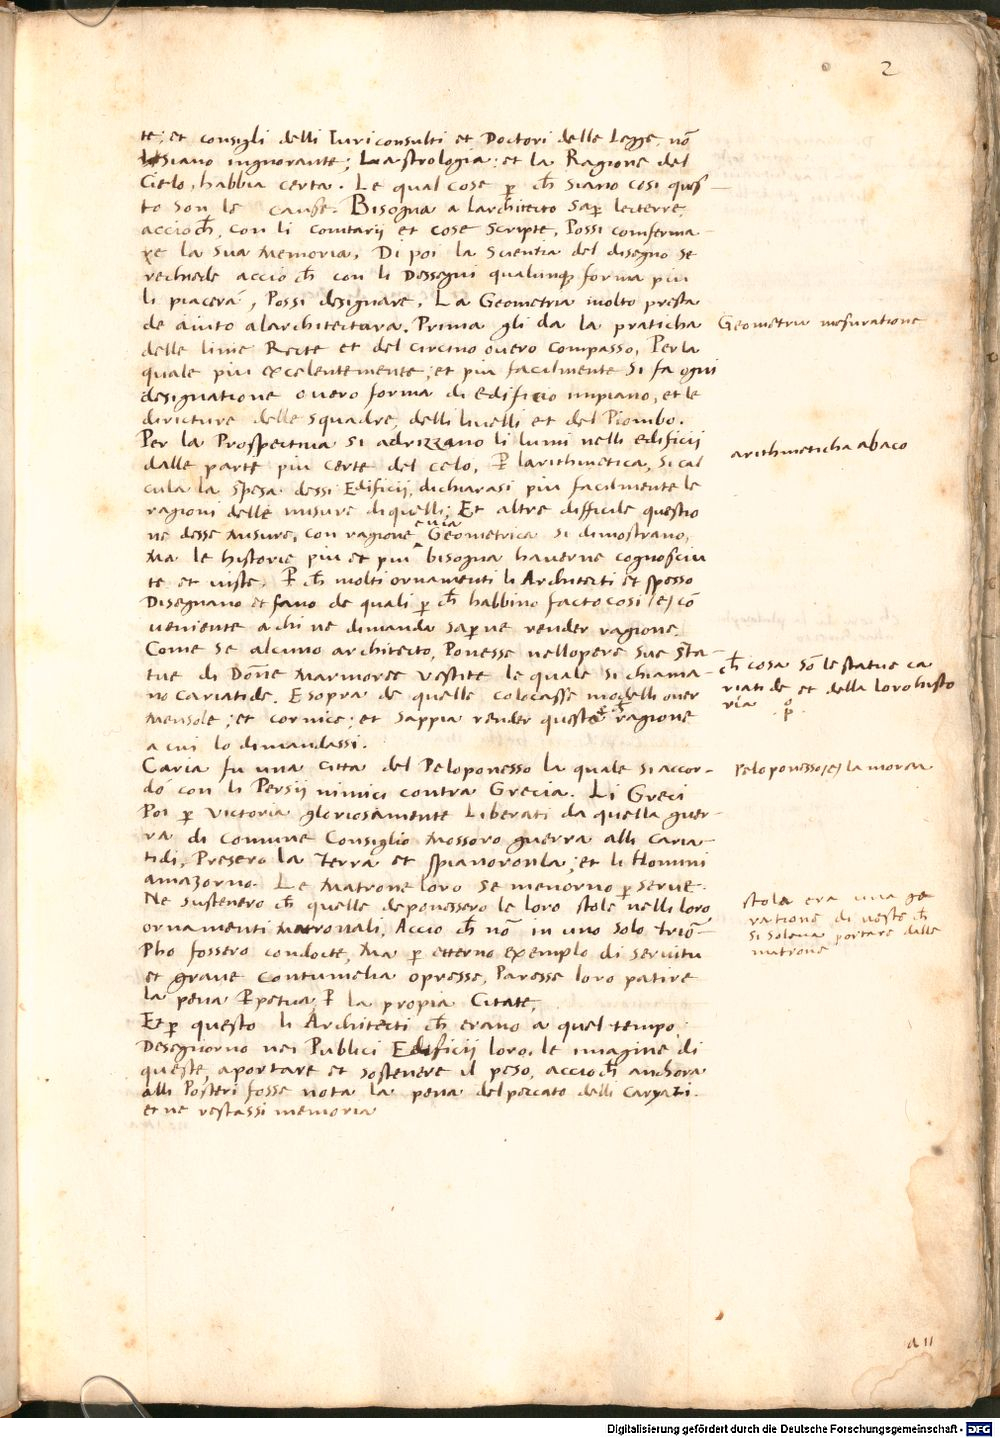 2
te; et consigli delli Iuriconsulti et Doctori delle Legge, nō
siano ingnorante; La astrologia: et la Ragione del
Cielo, habbia certa. Le qual cose p̱ ch̄ siano cosi ques-
to son le cause. Bisogna a larchitecto sap̱ lecterre,
accioch̄, con li comtarij et cose scripte, Possi comferma-
re la sua memoria. Di poi la Scientia del disegno se
rechiede accio ch̄ con li Dessegni qualunqꝫ forma piu
li piacerà, Possi designare. La Geometria molto presta
de aiuto alarchitectura. Prima gli da la praticha
delle linie Recte et del circino overo compasso, Per la
quale piu excelentemente; et piu facilmente si fa ogni
designatione overo forma di edificio impiano, et le
diricture delle squadre, delli livelli et del Piombo.
Per la Prospectiva si adrizzano li lumi nelli edificij
dalle parte piu certe del celo, P̱ larithmetica, si cal
cula la spesa dessi Edificij, dichiarasi piu facilmente le
ragioni delle misure di quelli; Et altre difficile questio
ne desse misure, con ragione Geometrica si dimostrano,
Ma le historie piu et piu bisogna haverne cognosciu
te et viste, P̱ ch̄ molti ornamenti li Architecti et spesso
Disegnano et fano de quali p̱ ch̄ habbino facto cosi /e/ cō
veniente a chi ne dimanda sap̱ne render ragione.
Come se alcuno architecto, Ponesse nellopere sue sta-
tue di Donne Marmoree vestite le quale si chiama-
no cariatide. E sopra de quelle colocasse modelli over
Mensole; et cornice; et sappia render queste ragione
a cui lo dimandassi.
Caria fu una citta del Peloponesso la quale si accor-
do con li Persij nimici contra Grecia. Li Greci
Poi p̱ victoria gloriosamente Liberati da quella guer-
ra di comune Consiglio Mossoro guerra alli Caria
tidi, Presero la Terra et spianoronla; et li Homini
amazorno. Le Matrone loro se menorno p̱ serve.
Ne sustenero ch̄ quelle deponessero le loro stole nelli loro
ornamenti Matronali, Accio ch̄ nō in uno solo triō-
pho fossero condocte, Ma p̱ etterno exemplo di servitu
et grave contumelia opresse, Paresse loro patire
la pena P̱petua, P̱ la propia Citate,
Et p̱ questo li Architecti ch̄ erano a quel tempo,
Desegnorno nei Publici Edificij loro, le imagine di
queste, a portare et sostenere il peso, accioch̄ anchora
alli Posteri fosse nota la pena del peccato delli Caryati.
et ne restassi memoria
Geometria mesuratione
arithmeticha abaco
ch̄ cosa sō le statue ca
riatide et della loro histo
ria
Peloponesso /e/ la morea
stola era una ge
ratione di veste ch̄
si soleva portare dalle
matrone
a ii
Digitalisierung gefördert durch die Deutsche Forschungsgemeinschaft - DFG